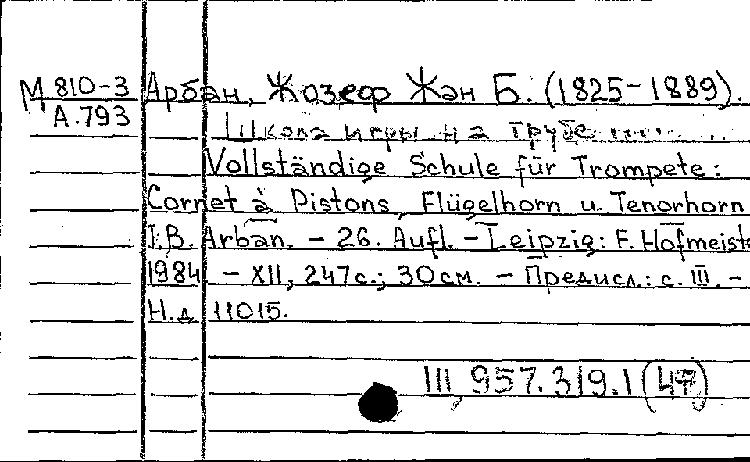 М 810-3 Арбан, Жозеф Жан Б. (1825-1889).
А.793
Школа игры на трубе
Vollständige Schule für Trompete:
Cornet à Pistons, Flügelhorn u. Tenorhorn
J.B. Arban. - 26. Aufl. - Leipzig: F. Hofmeiste
1984 - XII, 247с.; 30см. - Предисл.: с. III. -
Н.д 11015.
III, 957.319.1 (47)